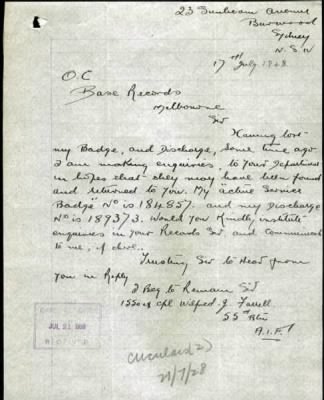 23 Sunbeam Avenue
Burwood
Sydney
N.S.W
17th July 1928
O.C
Base Records
Melbourne
Sir
Having lost
my Badge, and Discharge, some time ago
I am making enquiries, to your Department
in hopes that they may have been found
and returned to you. My "active Service
Badge" No is 184857. and my Discharge
No is 189373. Would you Kindly institute
enquiries in your Records Sir and communicate
to me, if alive..
Trusting Sir to Hear from
you in Reply
I Beg to Remain Sir
Cpl Wilfred J. Farrell
55th Btn
A.I.F.
JUL 21 1928
21/7/28